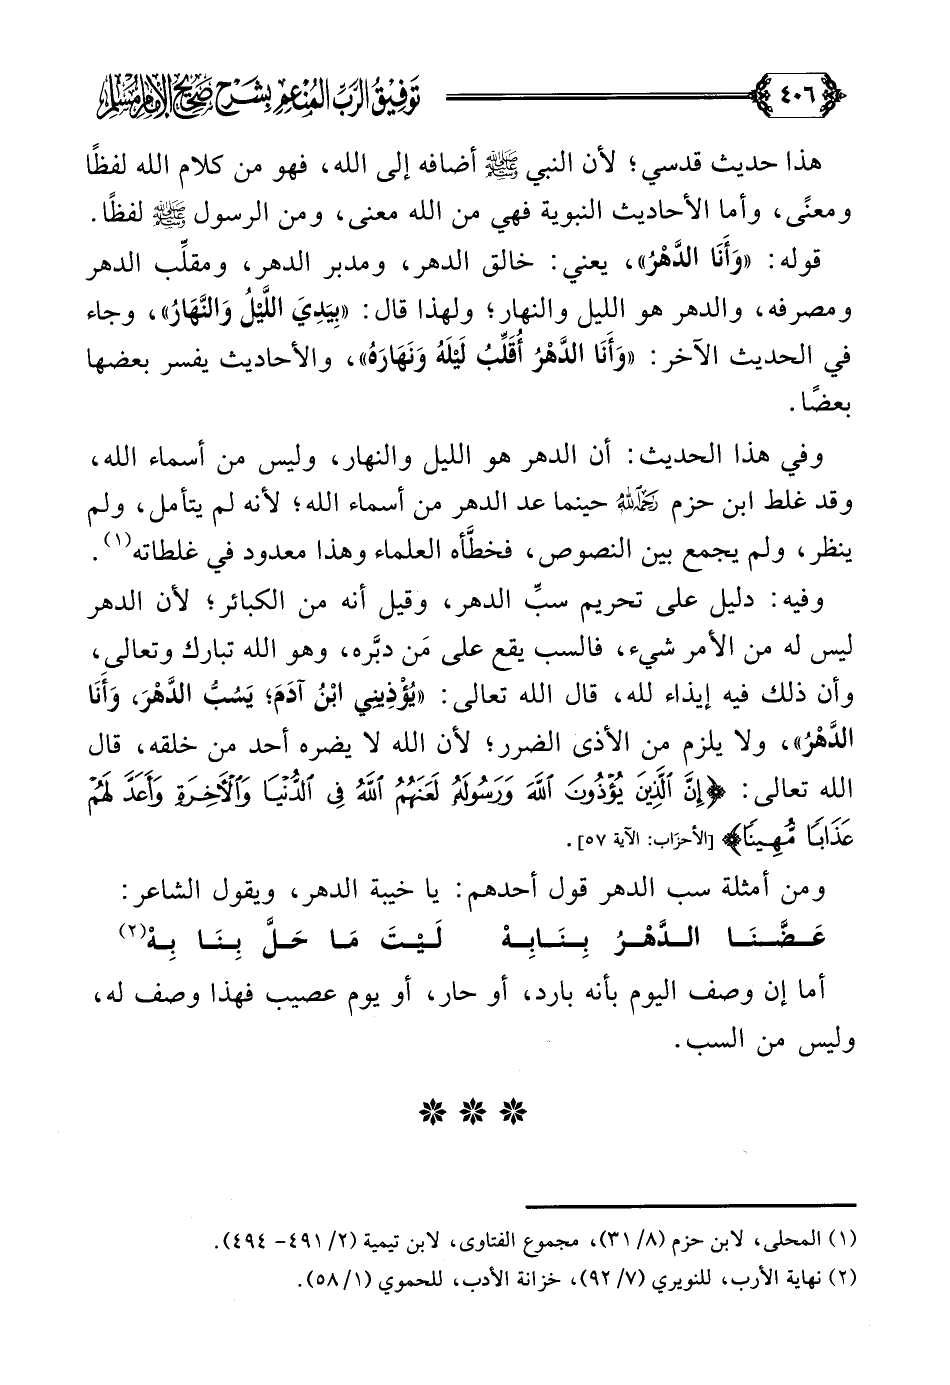 ٤٠٦ توفيق الرب المنعم بشرح صحيح الإمام مسلم
هذا حديث قدسي؛ لأن النبي ﷺ أضافه إلى الله، فهو من كلام الله لفظًا
ومعنًى، وأما الأحاديث النبوية فهي من الله معنى، ومن الرسول ﷺ لفظًا.
قوله: «وَأَنَا الدَّهْرُ»، يعني: خالق الدهر، ومدبر الدهر، ومقلِّب الدهر
ومصرفه، والدهر هو الليل والنهار؛ ولهذا قال: «بِيَدِيَ اللَّيْلُ وَالنَّهَارُ»، وجاء
في الحديث الآخر: «وَأَنَا الدَّهْرُ أُقَلِّبُ لَيْلَهُ وَنَهَارَهُ»، والأحاديث يفسر بعضها
بعضًا.
وفي هذا الحديث: أن الدهر هو الليل والنهار، وليس من أسماء الله،
وقد غلط ابن حزم رَحِمَهُ اللهُ حينما عد الدهر من أسماء الله؛ لأنه لم يتأمل، ولم
ينظر، ولم يجمع بين النصوص، فخطَّأه العلماء وهذا معدود في غلطاته(١).
وفيه: دليل على تحريم سبِّ الدهر، وقيل أنه من الكبائر؛ لأن الدهر
ليس له من الأمر شيء، فالسب يقع على مَن دبَّره، وهو الله تبارك وتعالى،
وأن ذلك فيه إيذاء لله، قال الله تعالى: «يُؤْذِينِي ابْنُ آدَمَ؛ يَسُبُّ الدَّهْرَ، وَأَنَا
الدَّهْرُ»، ولا يلزم من الأذى الضرر؛ لأن الله لا يضره أحد من خلقه، قال
الله تعالى: ﴿إِنَّ ٱلَّذِينَ يُؤْذُونَ ٱللَّهَ وَرَسُولَهُۥ لَعَنَهُمُ ٱللَّهُ فِى ٱلدُّنْيَا وَٱلْأَخِرَةِ وَأَعَدَّ لَهُمْ
عَذَابًا مُّهِينًا﴾ [الأحزاب: الآية ٥٧].
ومن أمثلة سب الدهر قول أحدهم: يا خيبة الدهر، ويقول الشاعر:
عَضَّنَا الدَّهْرُ بِنَابِهْ لَيْتَ مَا حَلَّ بِنَا بِهْ(٢)
أما إن وصف اليوم بأنه بارد، أو حار، أو يوم عصيب فهذا وصف له،
وليس من السب.
(١) المحلى، لابن حزم (٨/ ٣١)، مجموع الفتاوى، لابن تيمية (٢/ ٤٩١- ٤٩٤).
(٢) نهاية الأرب، للنويري (٧/ ٩٢)، خزانة الأدب، للحموي (١/ ٥٨).